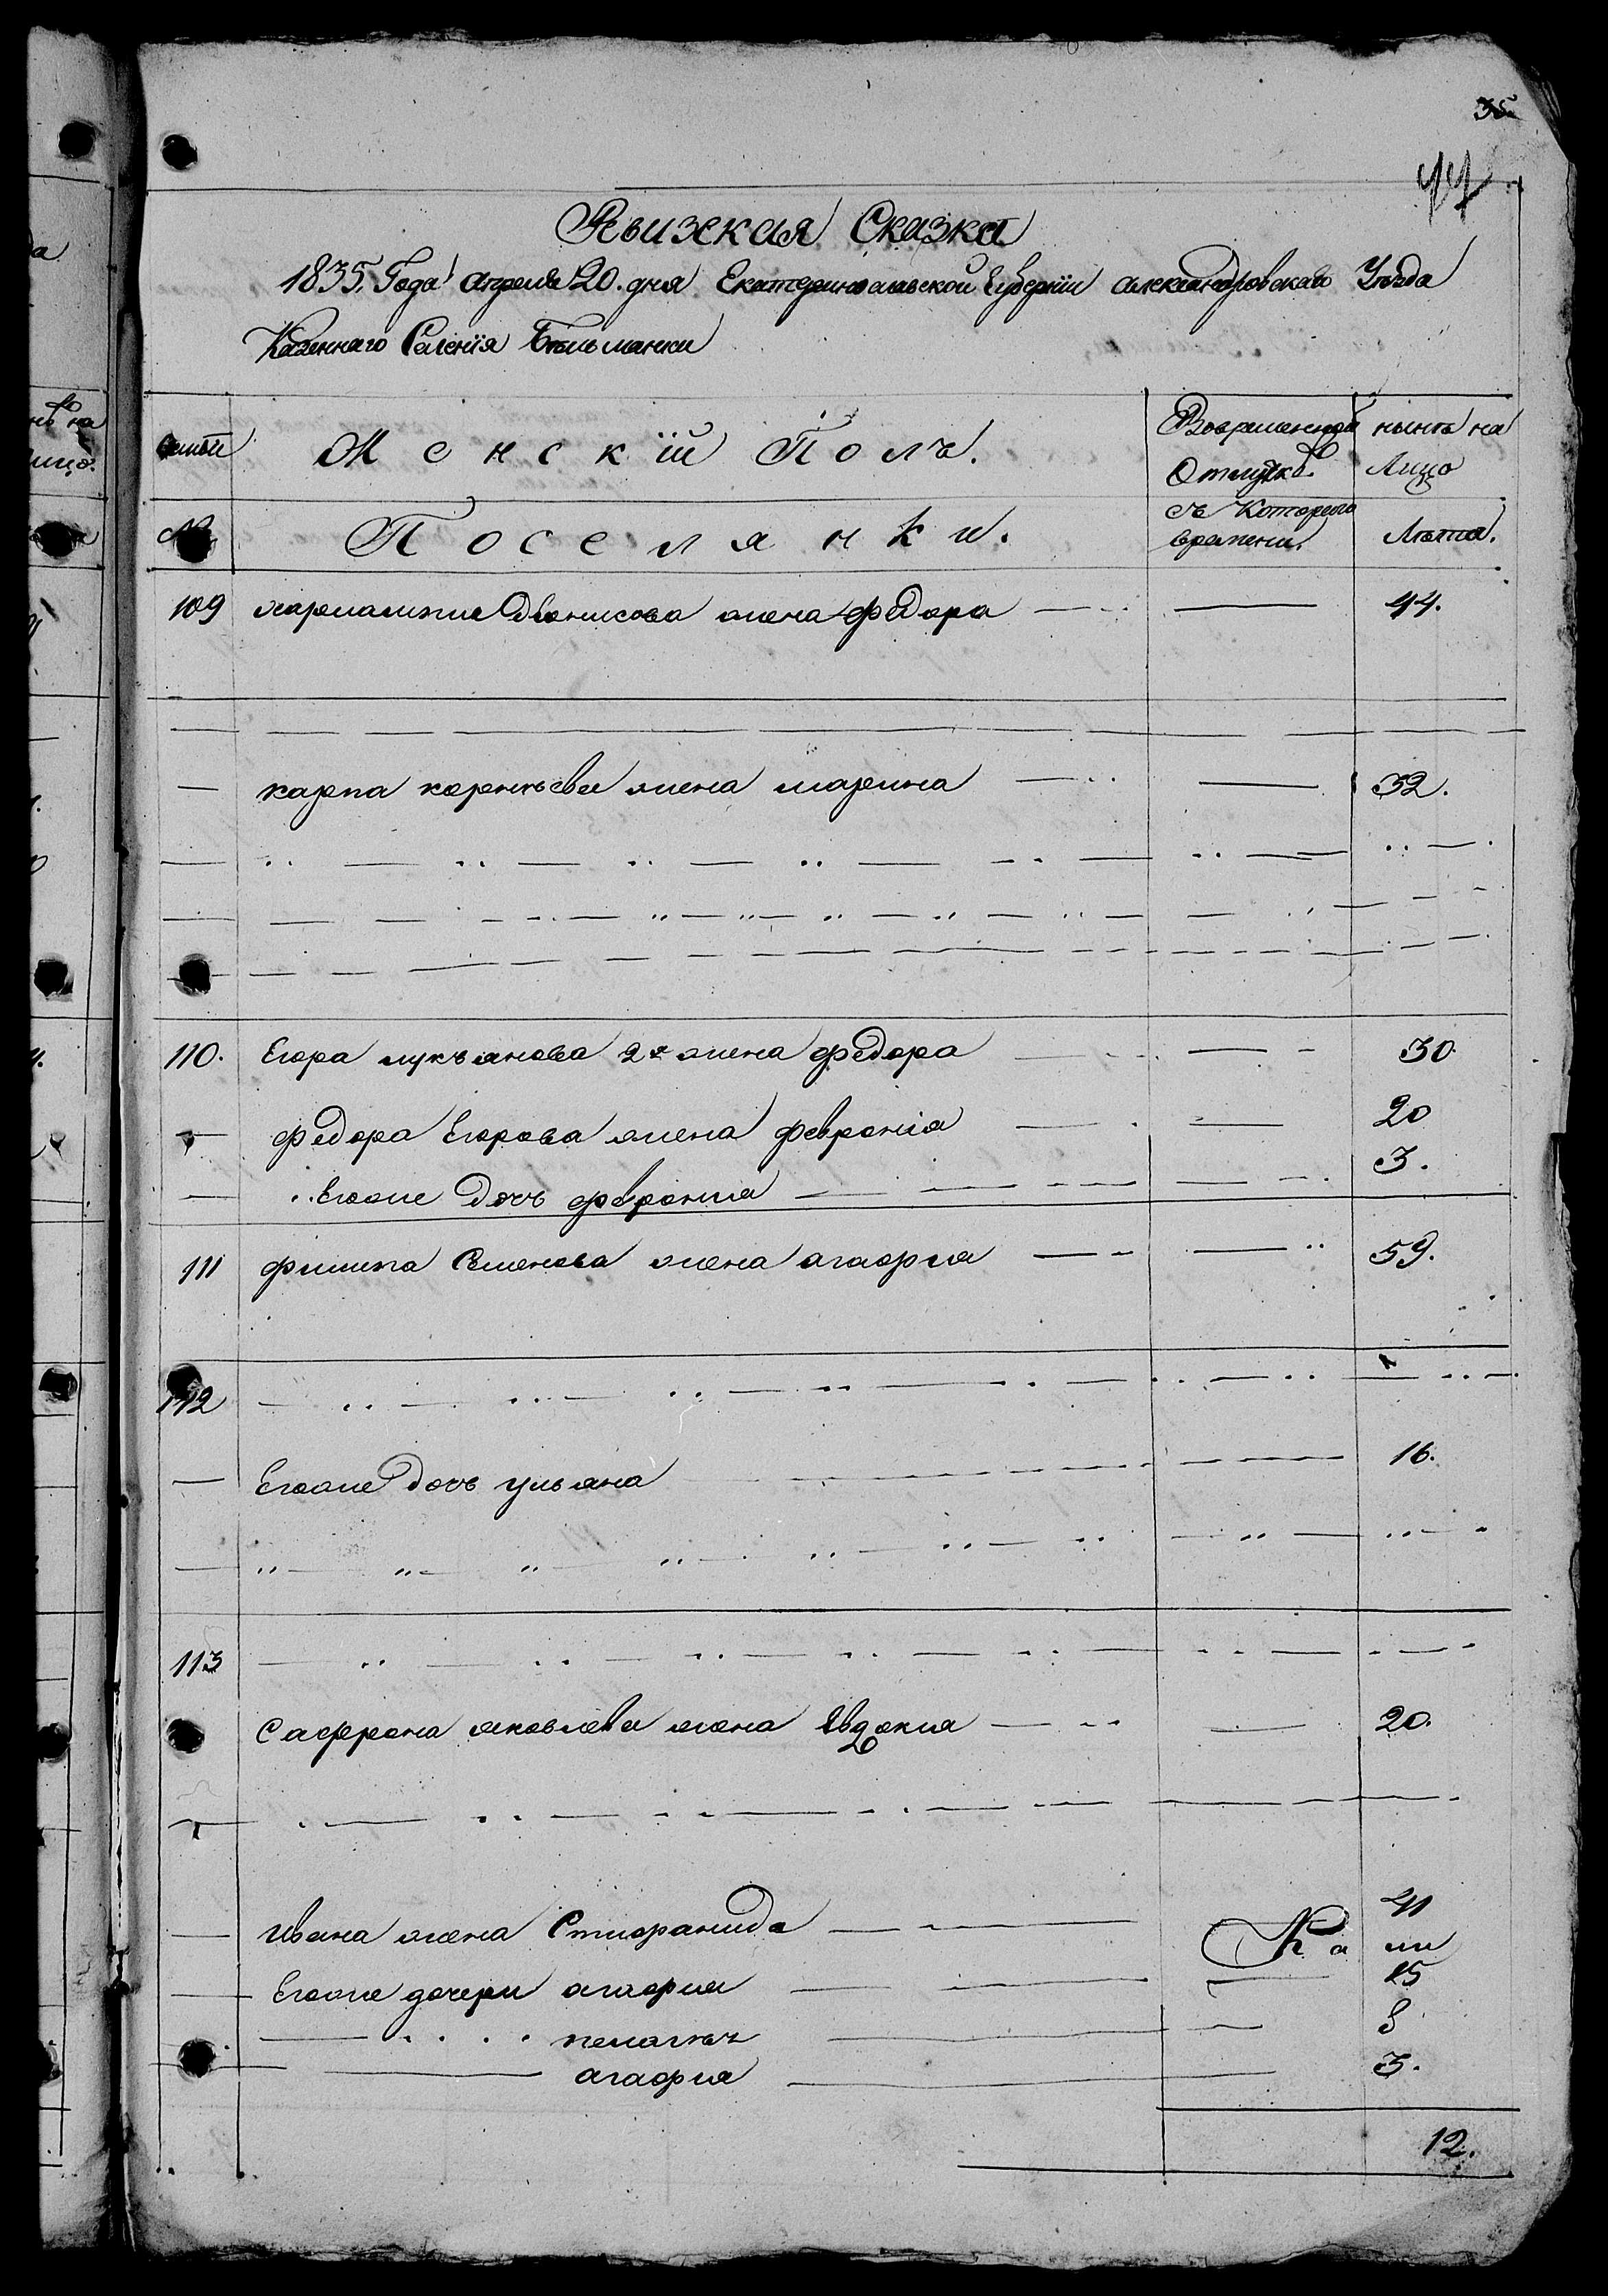 35
Ревизкая Сказка
1835. Года апреля 20. дня Екатеринославской Губернiи александровскаго Уѣзда
Казеннаго Селенiя Бѣльманки
Семьи Женскiй Полъ. Вовременной отлучкѣ нынѣ на Лицо
№ Поселянки. съ Котораго времени. Лѣта.
109 харлампия Денисова жена федора 44.
карпа корнѣева жена марина 32.
110. Егора лукъянова 2я жена федора 30
федора Егорова жена феврония 20
Егоже дочь феврония 3.
111 филипа Семенова жена агафия 59.
112
Егоже дочь ульяна 16.
113
Сафрона яковлева жена Евдокия 20.
Ивана жена Стифанида 41
Егоже дочери агафия 15
пелагея 8
агафия 3.
12.